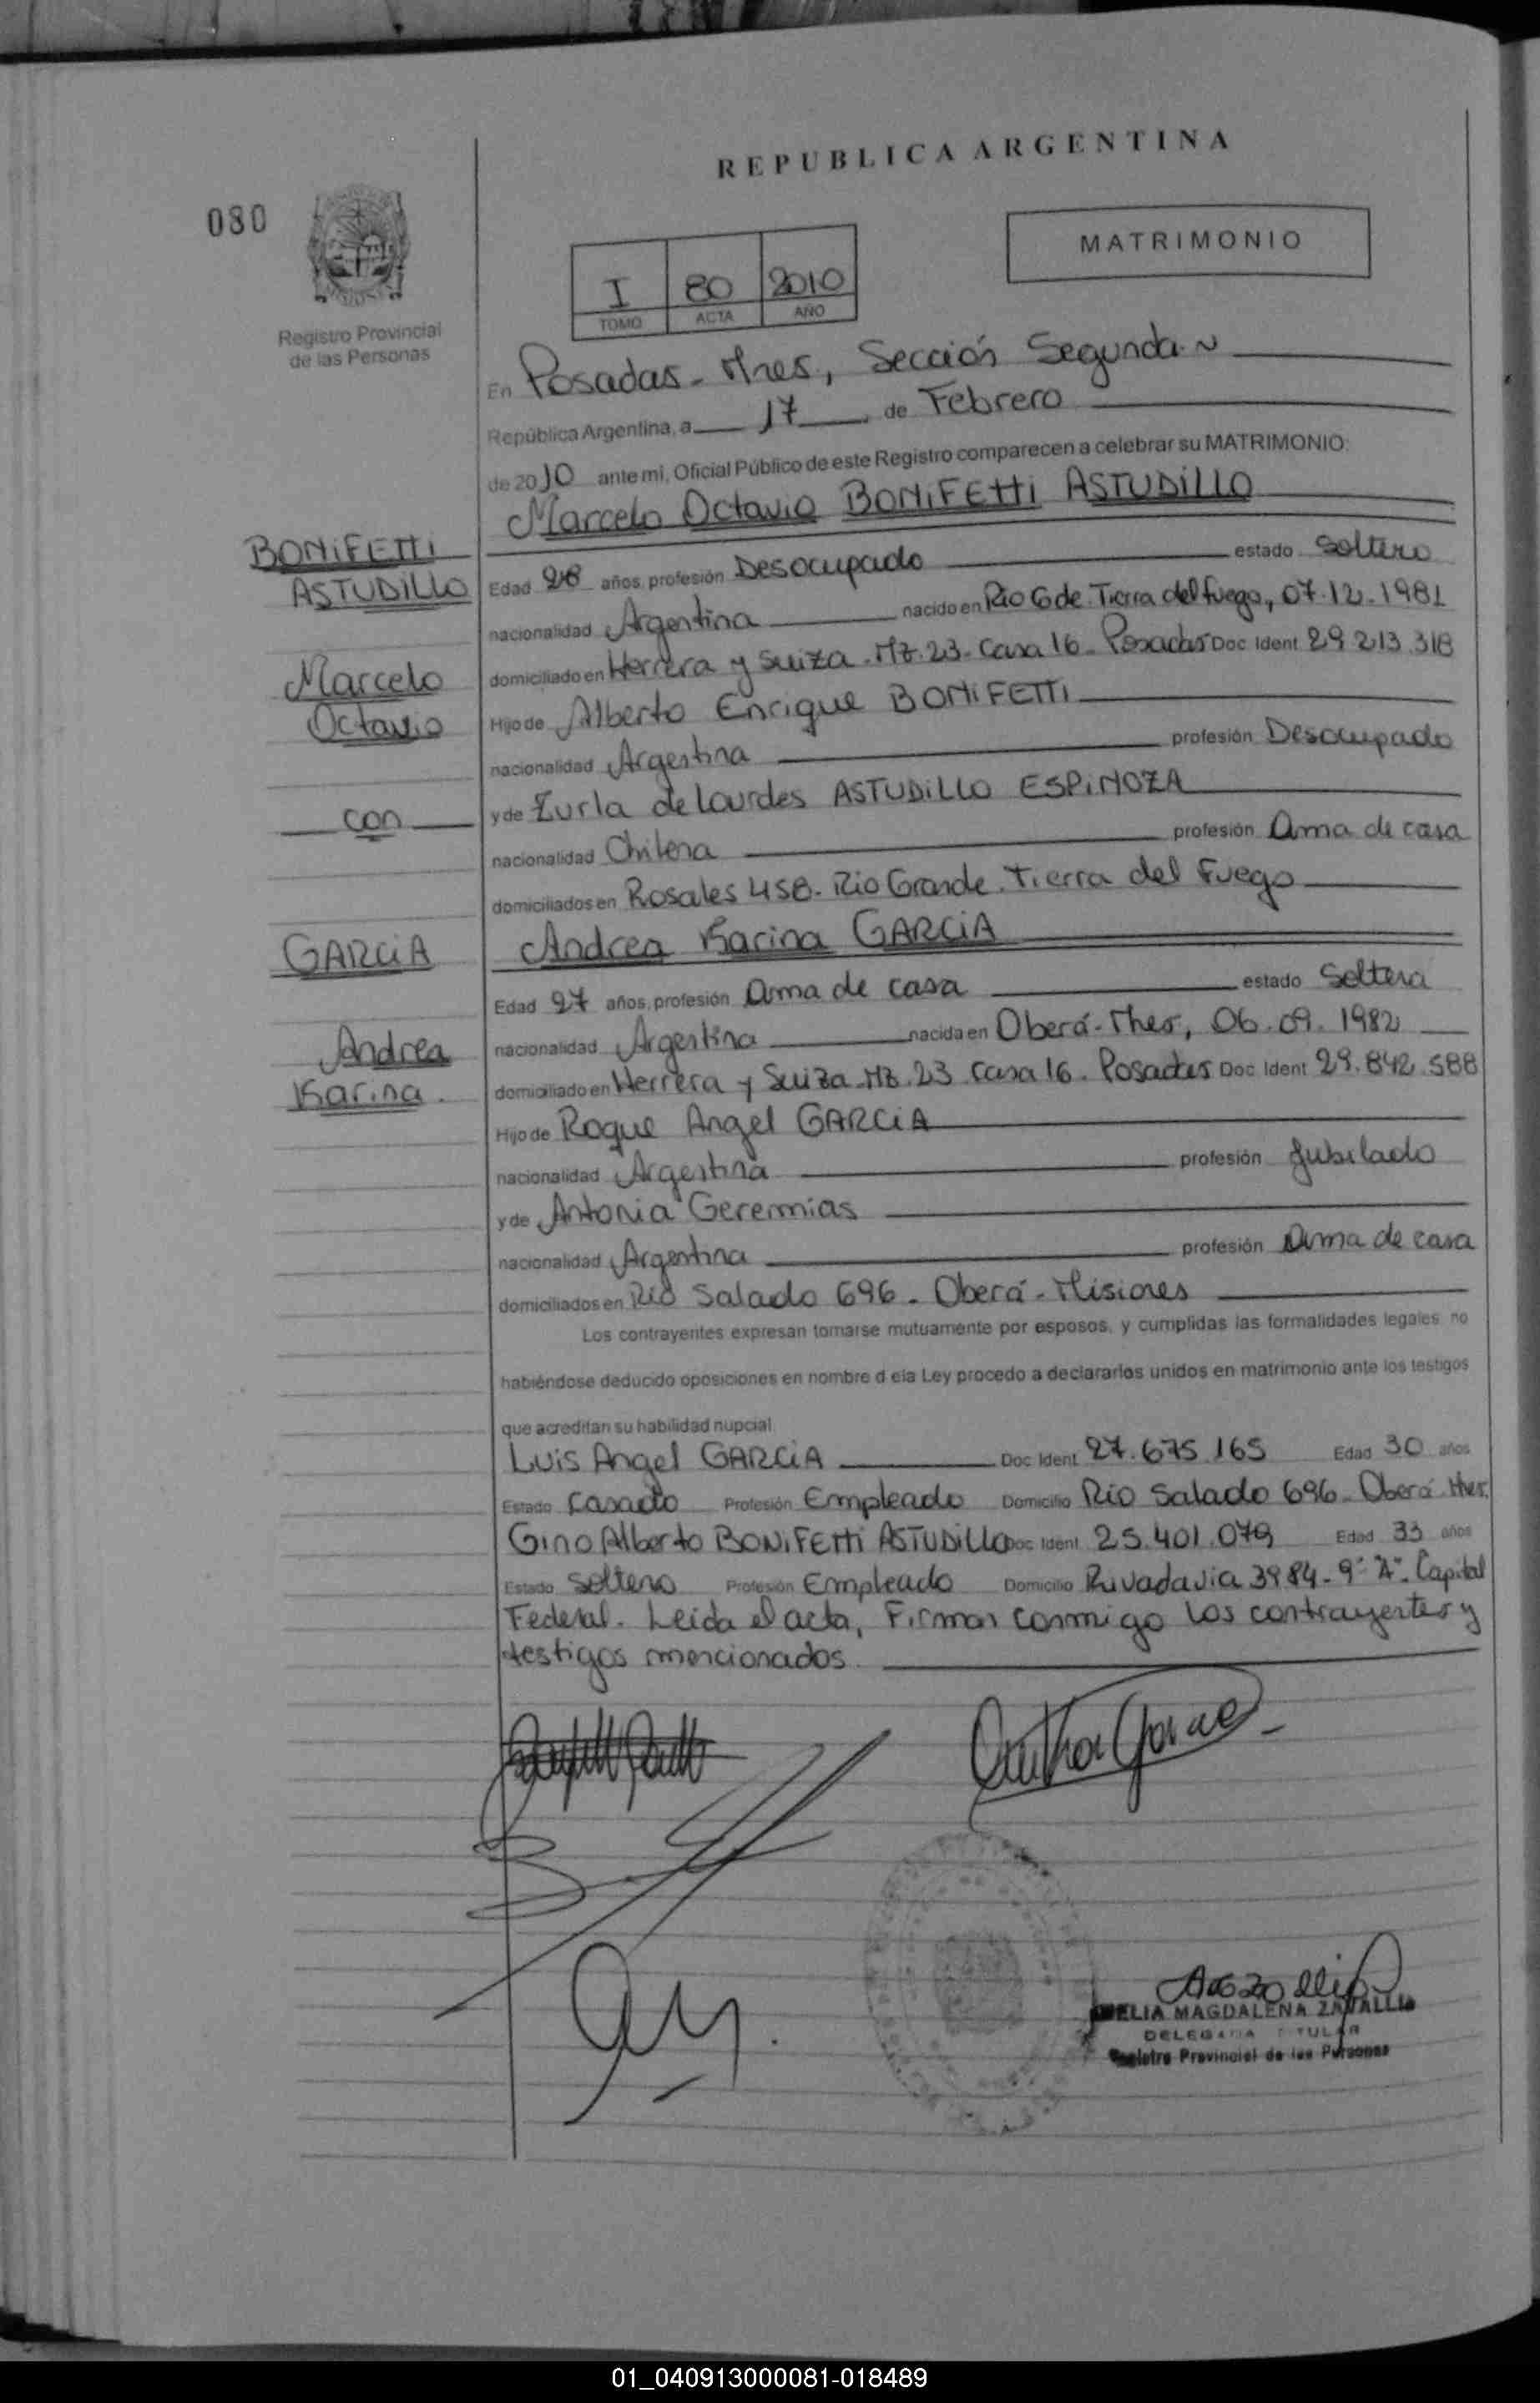 REPUBLICA ARGENTINA
080
MATRIMONIO
I 80 2010
TOMO ACTA AÑO
Registro Provincial
de las Personas
En Posadas - Mnes, Sección Segunda ~
República Argentina, a 17 de Febrero
de 2010 ante mi, Oficial Público de este Registro comparecen a celebrar su MATRIMONIO:
Marcelo Octavio BONiFEtti ASTUDiLLO
BONiFETTi
ASTUDiLLO
Marcelo
Octavio
con
GARCiA
Andrea
Karina.
Edad 28 años, profesión Desocupado estado Soltero
nacionalidad Argentina nacido en Rio Gde. Tierra del fuego, 07.12.1981
domiciliado en Herrera y Suiza. Mz. 23. Casa 16. Posadas Doc Ident 29.213.318
Hijo de Alberto Enrique BONiFETTi
nacionalidad Argentina profesión Desocupado
y de Zurla de Lourdes ASTUDiLLO ESPiNOZA
nacionalidad Chilena profesión Ama de casa
domiciliados en Rosales 458. Rio Grande. Tierra del Fuego
Andrea Karina GARCiA
Edad 27 años, profesión Ama de casa estado Soltera
nacionalidad Argentina nacida en Oberá - Mnes, 06.09.1982
domiciliado en Herrera y Suiza. Mz. 23 casa 16. Posadas Doc Ident 29.842.588
Hijo de Roque Angel GARCiA
nacionalidad Argentina profesión Jubilado
y de Antonia Geremias
nacionalidad Argentina profesión Ama de casa
domiciliados en Rio Salado 696 - Oberá - Misiones
Los contrayentes expresan tomarse mutuamente por esposos, y cumplidas las formalidades legales no
habiéndose deducido oposiciones en nombre d ela Ley procedo a declararlos unidos en matrimonio ante los testigos
que acreditan su habilidad nupcial
Luis Angel GARCiA Doc Ident 27.675.165 Edad 30 años
Estado Casado Profesión Empleado Domicilio Rio Salado 696 - Oberá Mnes.
Gino Alberto BONiFEtti ASTUDiLLO Doc Ident 25.401.079 Edad 33 años
Estado Soltero Profesión Empleado Domicilio Rivadavia 3984 - 9º "A". Capital
Federal. Leida el acta, Firman conmigo los contrayentes y
testigos mencionados.
MAGDALENA
DELEGADA TITULAR
Registro Provincial de las Personas
01_040913000081-018489